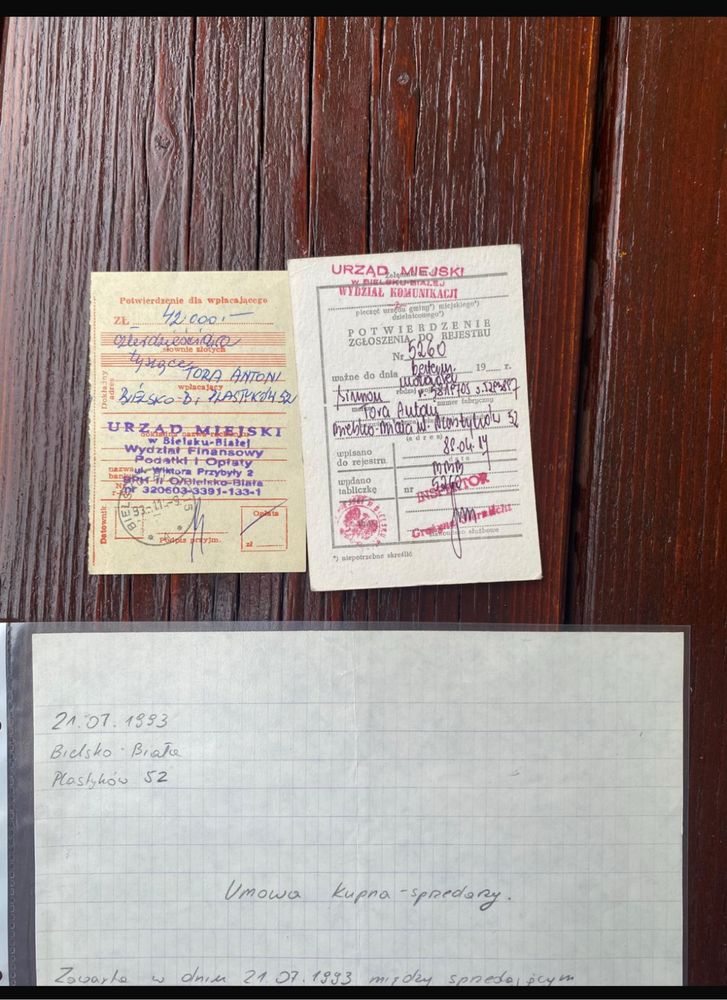 Potwierdzenie dla wpłacającego
ZŁ 42000.-
czterdzieści dwa
słownie złotych
tysiące TORA ANTONI
wpłacający
Dokładny adres
BIELSKO-B. PLASTYKÓW 52
URZĄD MIEJSKI
w Bielsku-Białej
Wydział Finansowy
Podatki i Opłaty
ul. Wiktora Przybyły 2
BRH II O/Bielsko-Biała
nr 320603-3391-133-1
nazwa
Datownik
Podpis przyjm.
Opłata
zł
URZĄD MIEJSKI
W BIELSKU-BIAŁEJ
WYDZIAŁ KOMUNIKACJI
pieczęć urzędu gminy*) miejskiego*)
dzielnicowego*)
POTWIERDZENIE
ZGŁOSZENIA DO REJESTRU
Nr 5260
ważne do dnia 19 r.
Simson
numer fabryczny
Tora Antoni
Bielsko-Biała ul. Plastyków 52
(adres)
wpisano
do rejestru
data
wydano
tabliczkę
nr 5260
INSPEKTOR
*) niepotrzebne skreślić
21.07.1993
Bielsko-Biała
Plastyków 52
Umowa Kupna-sprzedaży.
Zawarta w dniu 21.07.1993 między sprzedającym